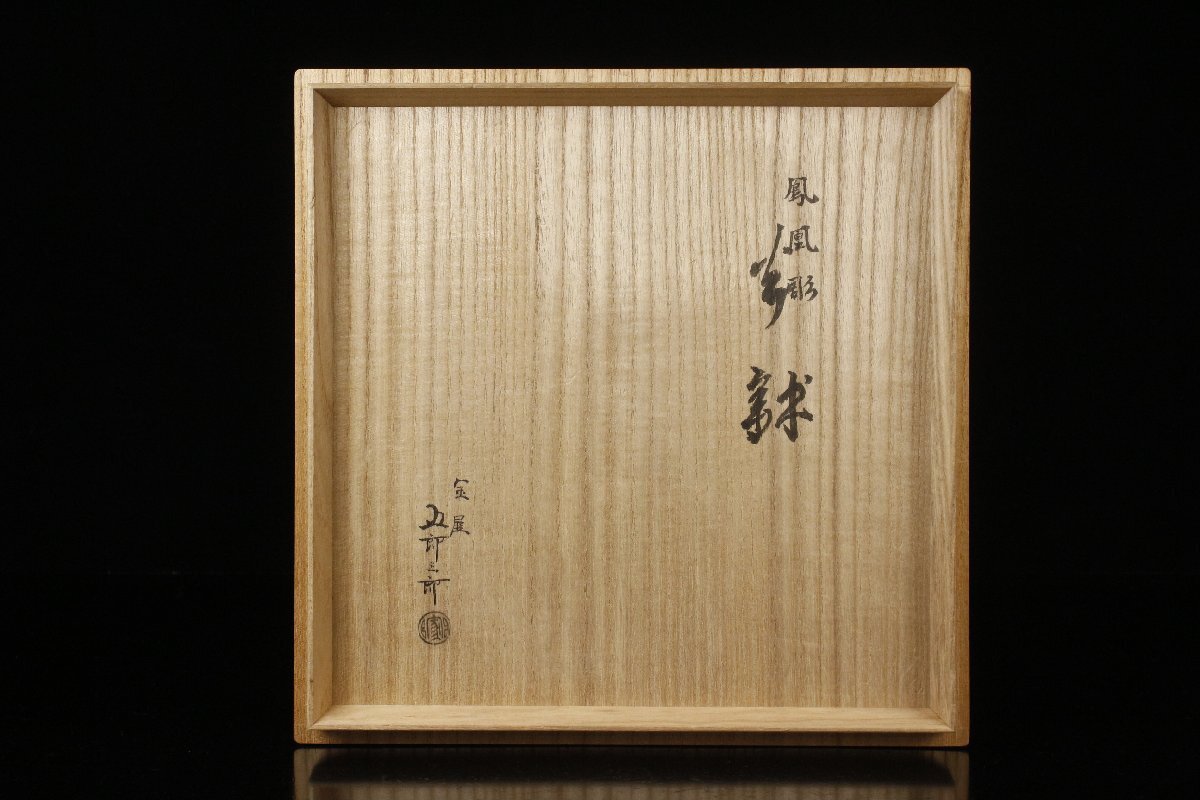 鳳凰彫
鉢
金屋
五郎三郎